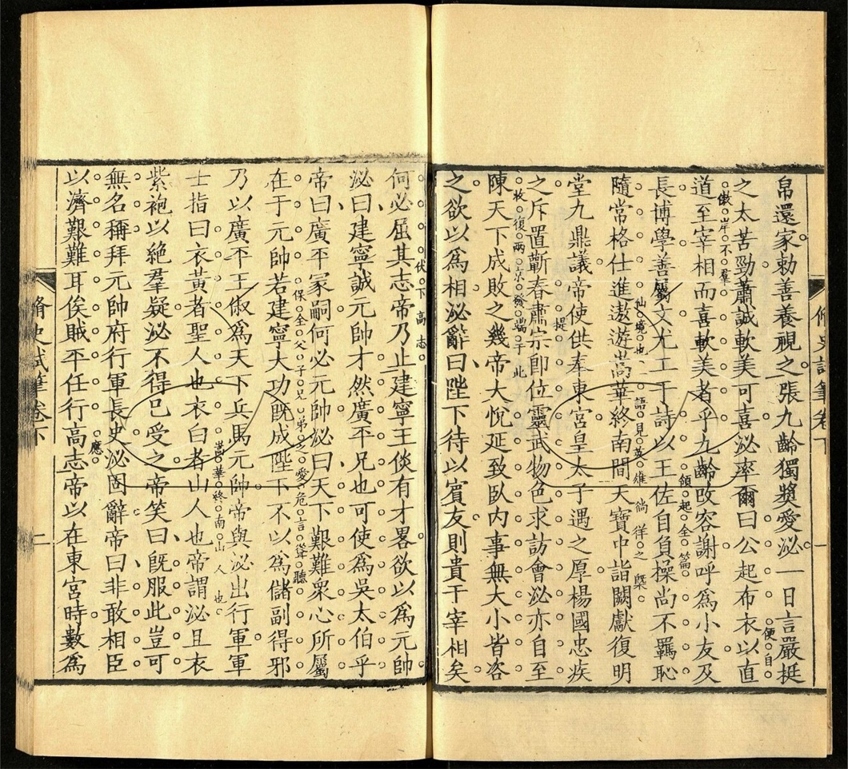 帛還家勅善養視之張九齡獨奬愛泌一日言嚴挺
便自
之太苦勁蕭誠軟美可喜泌率爾曰公起布衣以直
傲岸不羣
道至宰相而喜軟美者乎九齡改容謝呼爲小友及
領起全篇
長博學善屬文尤工于詩以王佐自負操尚不羈恥
隨常格仕進遨遊嵩華終南間天寶中詣闕獻復明
堂九鼎議帝使供奉東宮皇太子遇之厚楊國忠疾
提
之斥置蘄春肅宗卽位靈武物色求訪會泌亦自至
收復兩京發端于此
陳天下成敗之幾帝大悅延致臥內事無大小皆咨
之欲以爲相泌辭曰陛下待以賓友則貴于宰相矣
脩史試筆卷下
一
伏下高志
何必屈其志帝乃止建寧王倓有才畧欲以爲元帥
泌曰建寧誠元帥才然廣平兄也可使爲吳太伯乎
帝曰廣平冢嗣何必元帥泌曰天下艱難衆心所屬
保全父子兄弟之愛危言聳聽
在于元帥若建寧大功旣成陛下不以爲儲副得邪
乃以廣平王俶爲天下兵馬元帥帝與泌出行軍軍
嵩華終南山人也
士指曰衣黃者聖人也衣白者山人也帝謂泌且衣
紫袍以絕羣疑泌不得已受之帝笑曰旣服此豈可
無名稱拜元帥府行軍長史泌固辭帝曰非敢相臣
應
以濟艱難耳俟賊平任行高志帝以在東宮時數爲
脩史試筆卷下
二